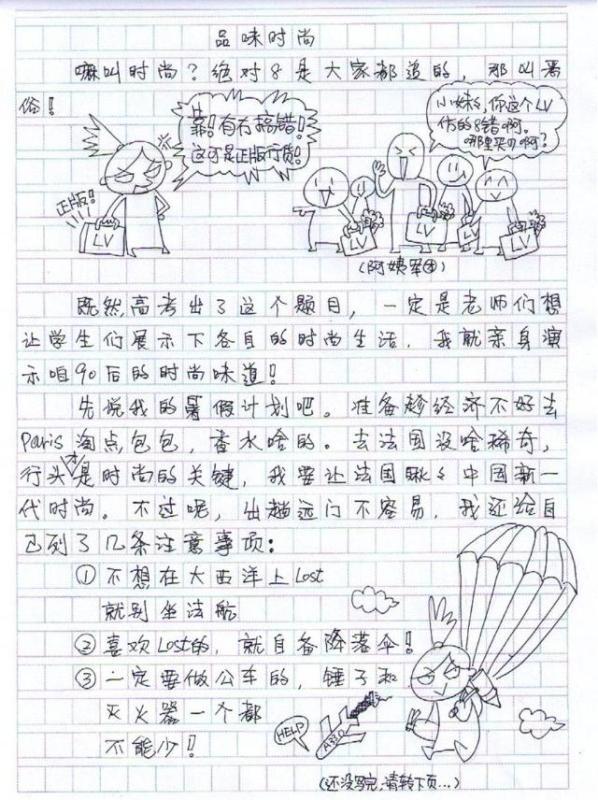 品味时尚
嘛叫时尚?绝对8是大家都追的,那叫恶
俗!
靠!有冇搞错!
这可是正版行货!
小妹,你这个LV
仿的8错啊。
哪里买的啊?
正版!
LV
LV
LV
LV
(阿姨军团)
既然高考出了这个题目,一定是老师们想
让学生们展示下各自的时尚生活,我就亲身演
示咱90后的时尚味道!
先说我的暑假计划吧。准备趁经济不好去
Paris淘点包包,香水啥的。去法国没啥稀奇,
行头才是时尚的关键,我要让法国瞅瞅中国新一
代时尚。不过呢,出趟远门不容易,我还给自
己列了几条注意事项:
①不想在大西洋上Lost
就别坐法航
②喜欢Lost的,就自备降落伞!
③一定要做公车的,锤子和
灭火器一个都
不能少!
HELP
(还没写完,请转下页...)